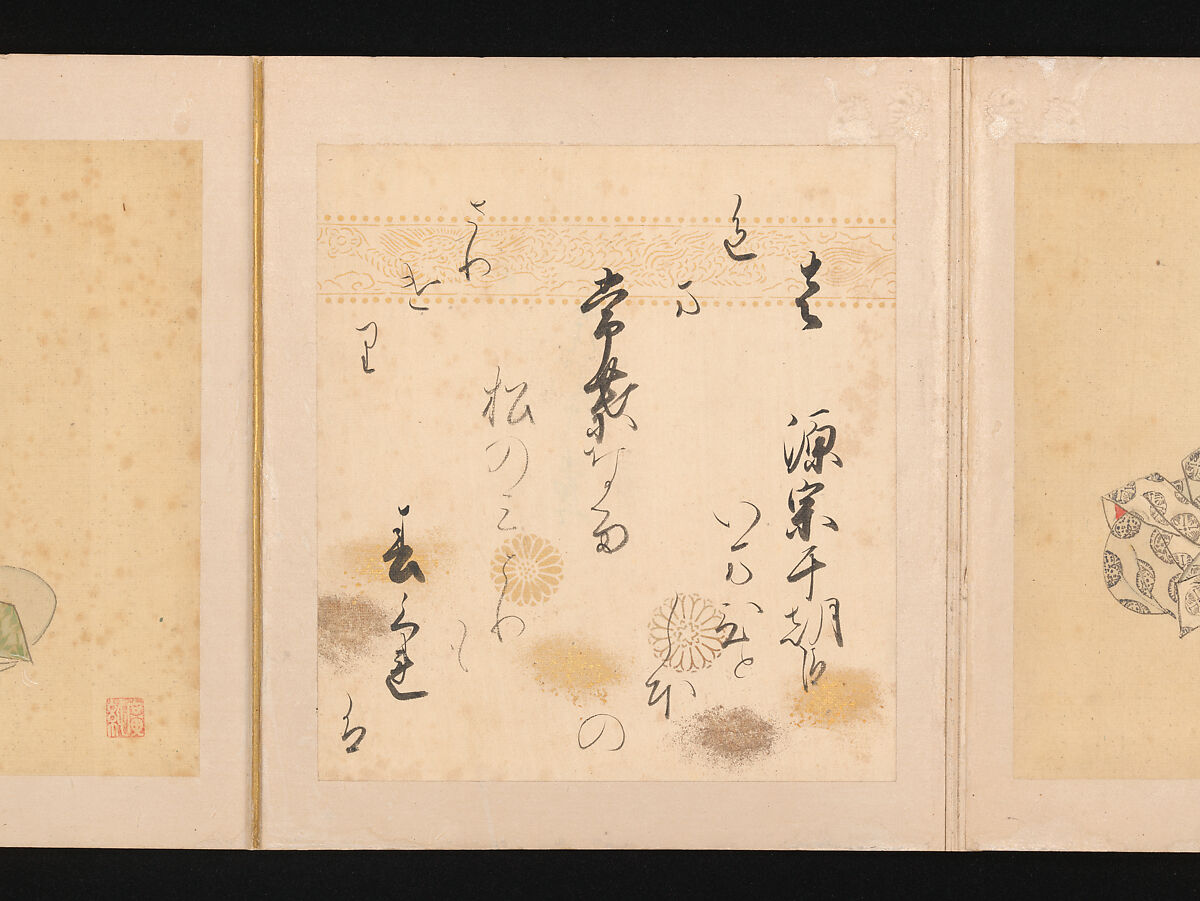 左 源宗于朝臣
常葉なる
松のみどり
も
春くれ
は
いまひと
しほ
の
色
ま
さり
け
り